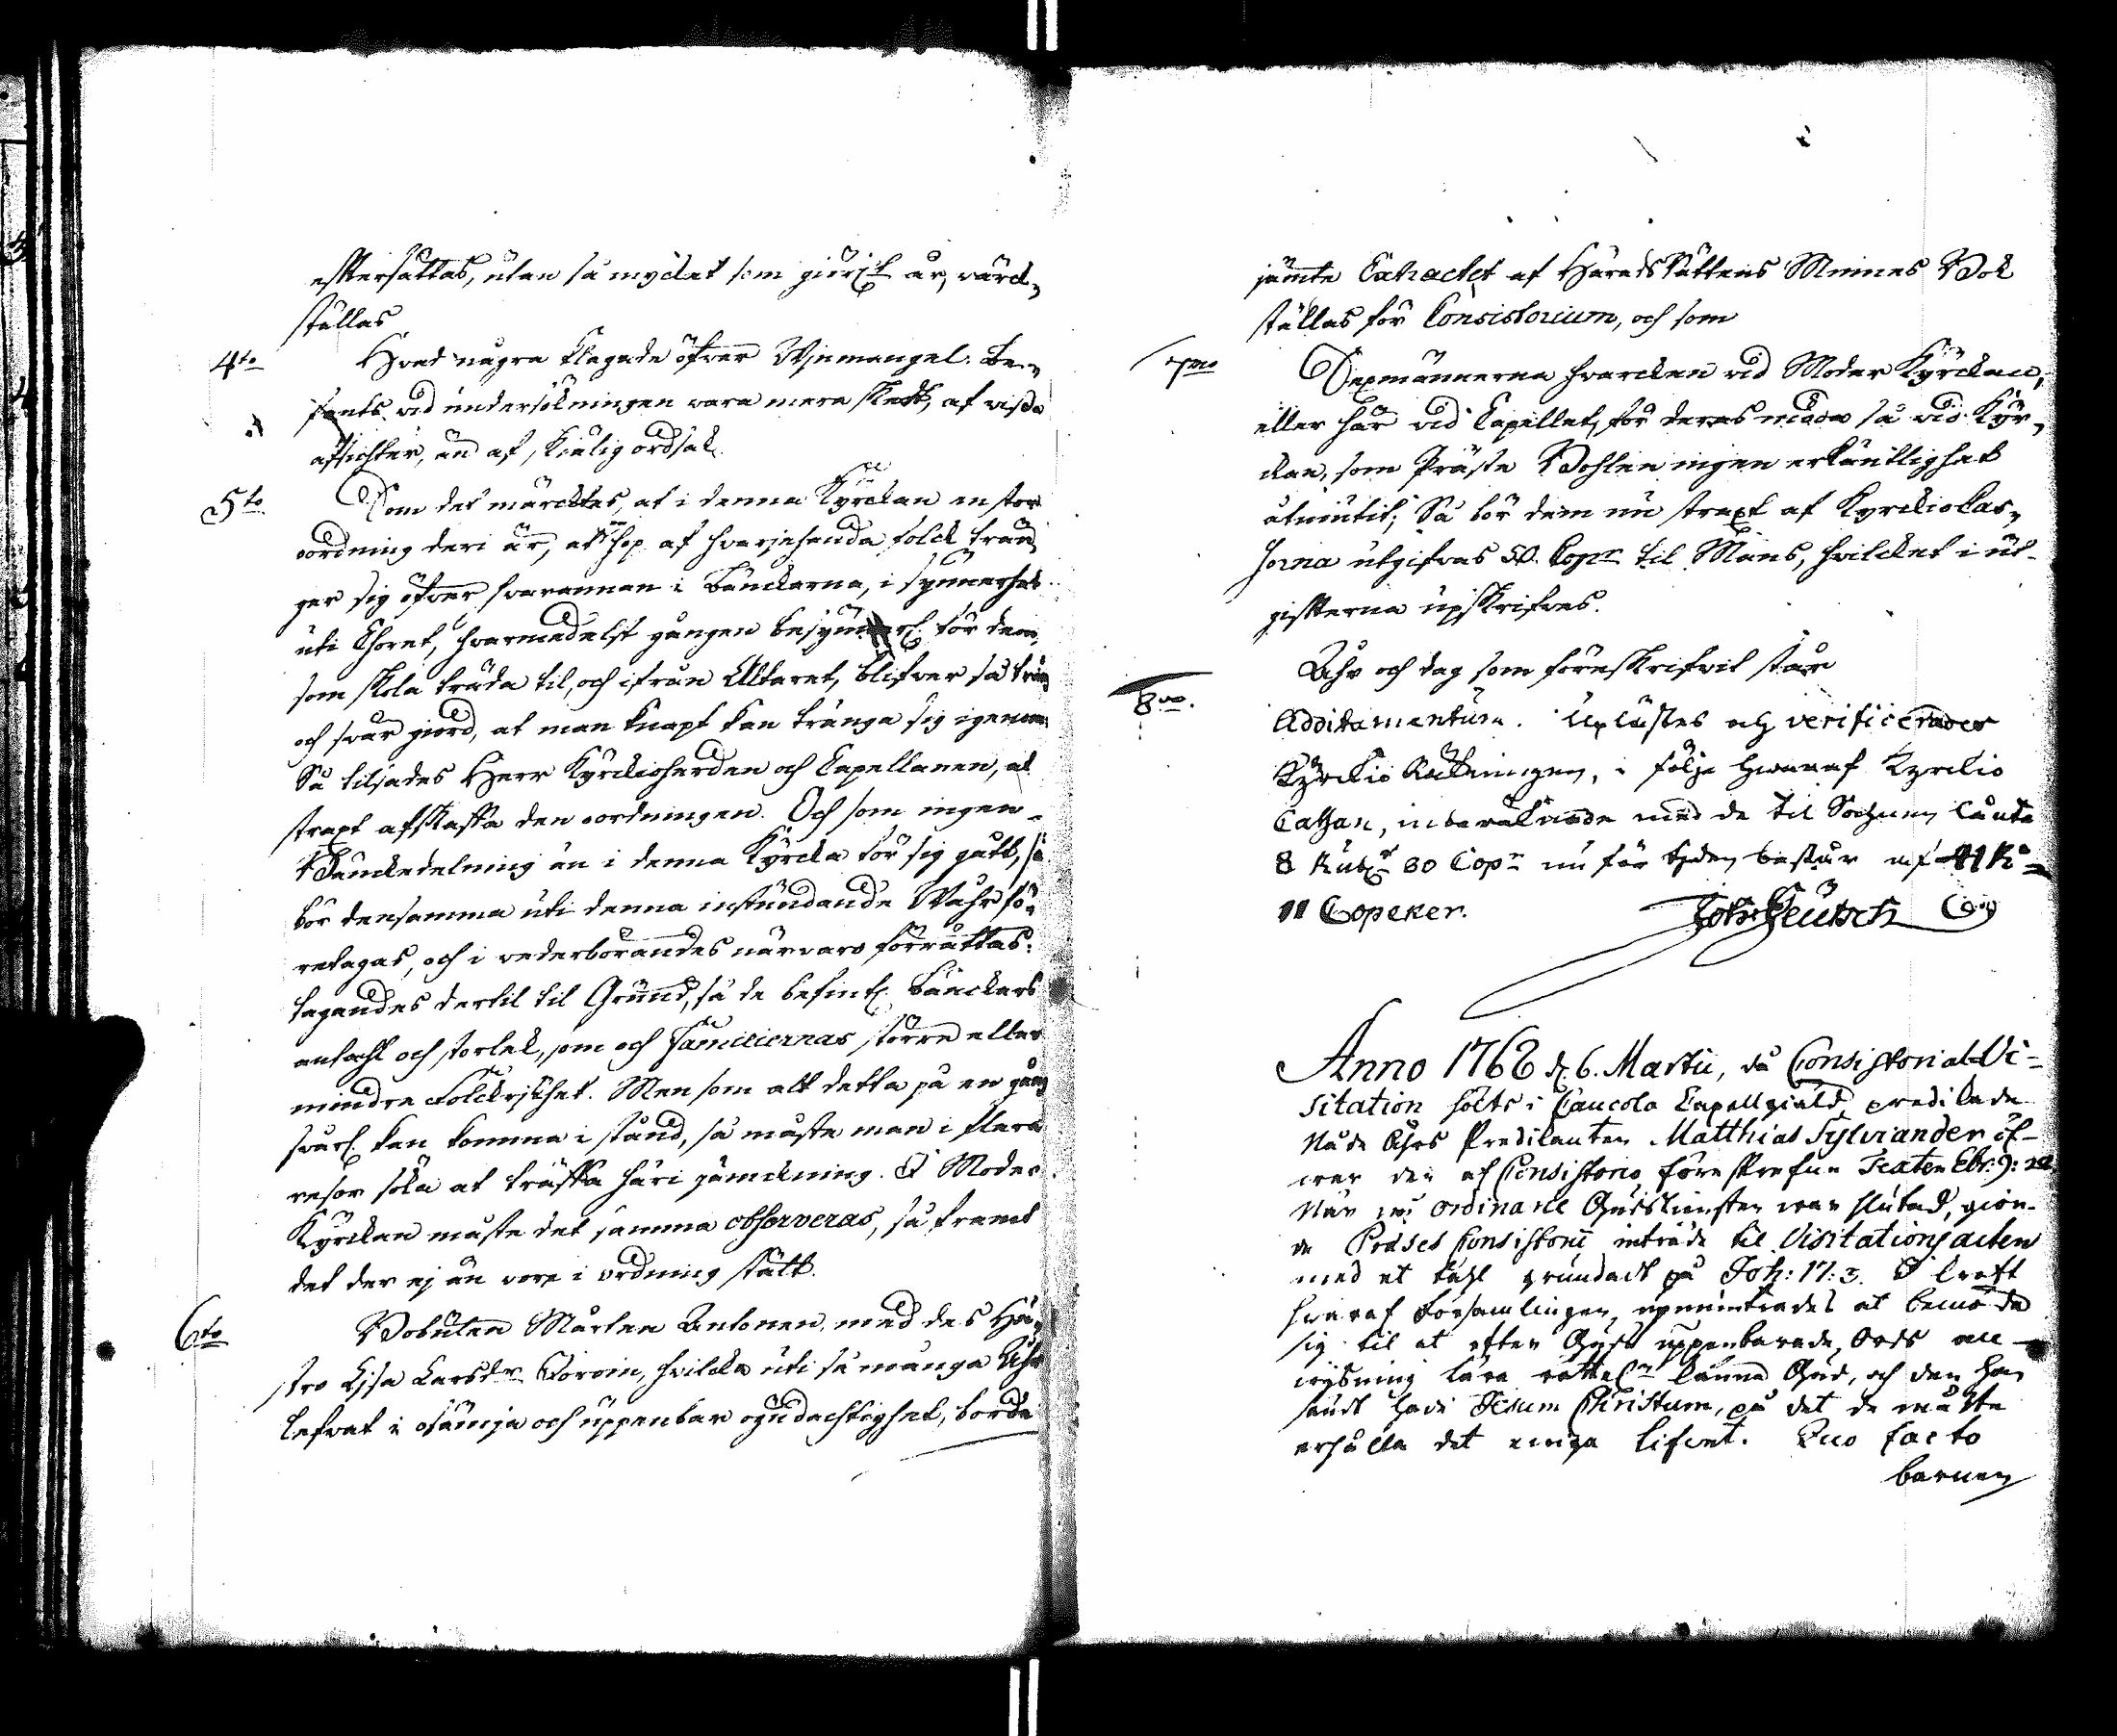 eftersättas, utan så mycket som giörl:t är, värck,,
ställas.
4to Hvad några klagade öfver Winmangel. be,,
fants vid undersökningen vara mera skedt, af vissa
afsichter, än af skiälig ordsak.
5to Som det märcktes, at i denna Kyrckan en stor
oordning deri är, at en hop af hvarjehanda folck trän,,
ger sig öfver hvarannan i bänckarna, i synnerhet
uti Choret, hvarmedelst gången besynnerl. för dem,
som skola träda til, och ifrån Altaret, blifver så trång
och svår giord, at man knapt kan tränga sig igenom:
Så tilsades Herr Kyrckioherden och Capellanen, at
straxt afskaffa den oordningen. Och som ingen
Bänckedelning än i denna Kyrcka för sig gått, så
bör densamma uti denna inståndande Wåhr fö,,
retagas, och i vederbörandes närvaro förrättas:
tagandes dertil til Grund, så de befintl. bänckars
antahl och storlek, som och Familiernas större eller
mindre Folckrikhet. Men som alt detta på en gång
svårl. kan komma i stånd, så måste man i flera
resor söka at träffa häri jämckning. I Moder
Kyrckan måste det samma observeras, så framt
det der ej än vore i ordning stält.
6to Bobuten Mårten Antonen, med des Hu,,
stro Lisa Larsdr Toroin, hvilcka uti så många Åhr
lefvat i osämja och uppenbar ogudachtighet, borde
jämte Extractet af HäradsRättens Minnes Bok
ställas för Consistorium, och som
7mo Sexmännerna hvarcken vid Moder Kyrckan,
eller här vid Capellet, för deras möda så vid Kyr,,
ckan, som Präste Bohlen ingen erkäntlighet
åtniutit; Så bör dem nu straxt af Kyrckiokas,,
sorna utgifvas 50. Copr til Mans, hvilcket i ut-
gifterna upskrifves.
Åhr och dag som föreskrifvit står
8vo. Additamentum. Uplästes och verificerades
Kyrckio Räkningen, i följe hwaraf Kyrckio
Cassan, inberäknade med de til Sochnen lånta
8 Rub:r 30 Copr nu för tyden består af 41 R:
11 Copeker. Joh: Geutsch
Anno 1762 d. 6. Martii, då Consistorial-Vi-
sitation hölts i Caucola Capellgiäld, predikade
Nåde Åhrs Predikanten Matthias Sylviander öf-
wer den af Consistorio föreskrefne Texten Ebr: 9:
När ordinarie Gudstiensten war slutad, gior-
de Præses Consistorii inträde til Visitations acten
med et tahl grundadt på Joh: 17: 3. I kraft
hwaraf Församlingen upmuntrades at bemöda
sig til at efter Guds uppenbarade Ords an-
wisning lära rättel:n känna Gud, och den han
sändt hade Jesum Christum, på det de måtte
erhålla det ewiga lifwet. Quo facto
barnen